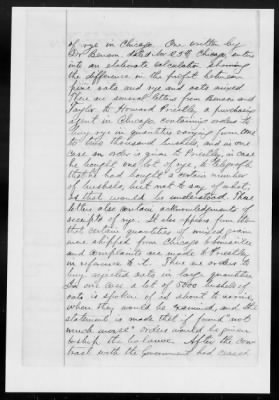 of rye in Chicago. One written by
Mr Benson dated Nov 25th Chicago enters
into an elaborate calculation showing
the difference in the profit between
pure oats and rye and oats mixed.
There are several letters from Benson and
Taylor to Howard Priestley a purchasing
agent in Chicago containing orders to
buy rye in quantities varying from one
to two thousand bushels, and in one
case an order is given to Priestley in case
he bought one lot of rye, to telegraph
that he had bought a certain number
of bushels, but not to say of what,
as that would be understood. These
letters also contain acknowledgments of
receipts of rye. It also appears from them
that certain quantities of mixed grain
was shipped from Chicago to
and complaints are made to Priestley
in reference to it. There are orders to
buy rejected oats in large quantities.
In one case a lot of 5000 bushels of
oats is spoken of as about to arrive,
where they would be examined, and the
statement is made that if found "not
much worse" orders would be given
to ship the balance. After the con-
tract with the Government had ceased